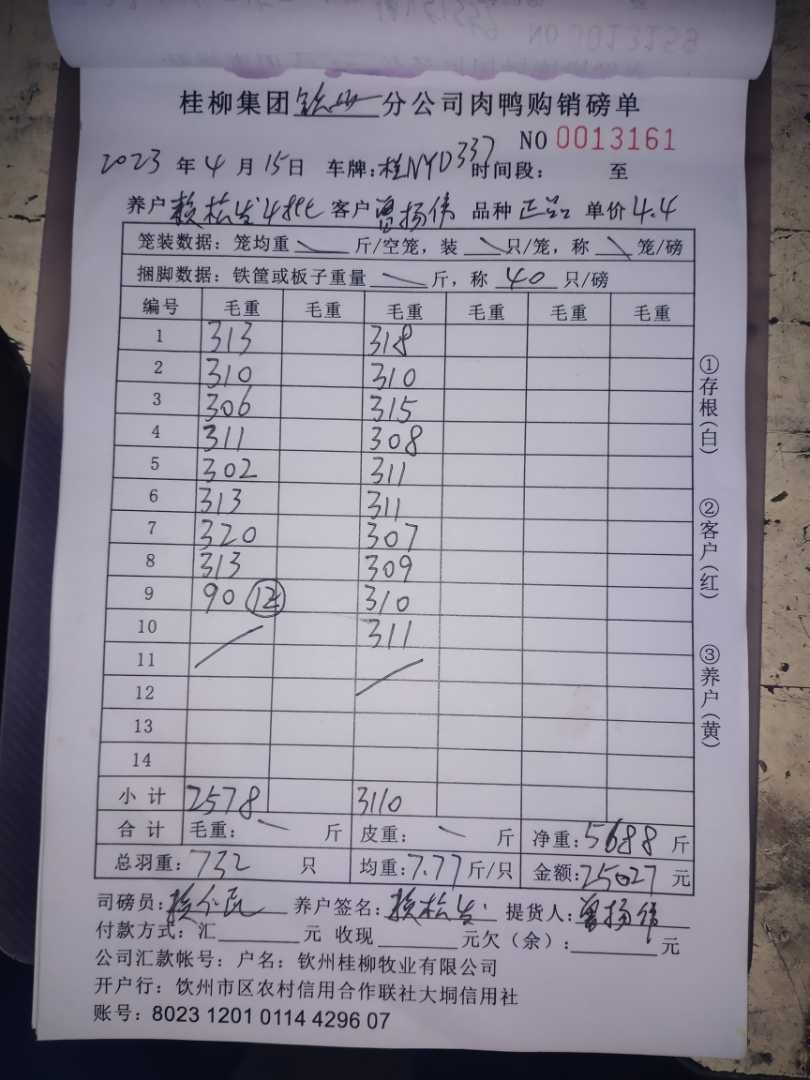 桂柳集团钦州分公司肉鸭购销磅单
NO 0013161
2023 年 4 月 15 日 车牌:桂NYD337 时间段: 至
养户 赖松发4批 客户 曾扬伟 品种 正品 单价 4.4
笼装数据: 笼均重 斤/空笼, 装 只/笼, 称 笼/磅
捆脚数据: 铁筐或板子重量 斤, 称 40 只/磅
编号 毛重 毛重 毛重 毛重 毛重 毛重
1 313 318
2 310 310
3 306 315
4 311 308
5 302 311
6 313 311
7 320 307
8 313 309
9 90 12 310
10 311
11
12
13
14
小计 2578 3110
合计 毛重: 斤 皮重: 斤 净重:5688 斤
总羽重:732 只 均重:7.77 斤/只 金额:25027 元
司磅员: 养户签名:赖松发 提货人:曾扬伟
付款方式: 汇 元 收现 元欠(余): 元
公司汇款帐号: 户名: 钦州桂柳牧业有限公司
开户行: 饮州市区农村信用合作联社大垌信用社
账号: 8023 1201 0114 4296 07
①存根(白)
②客户(红)
③养户(黄)